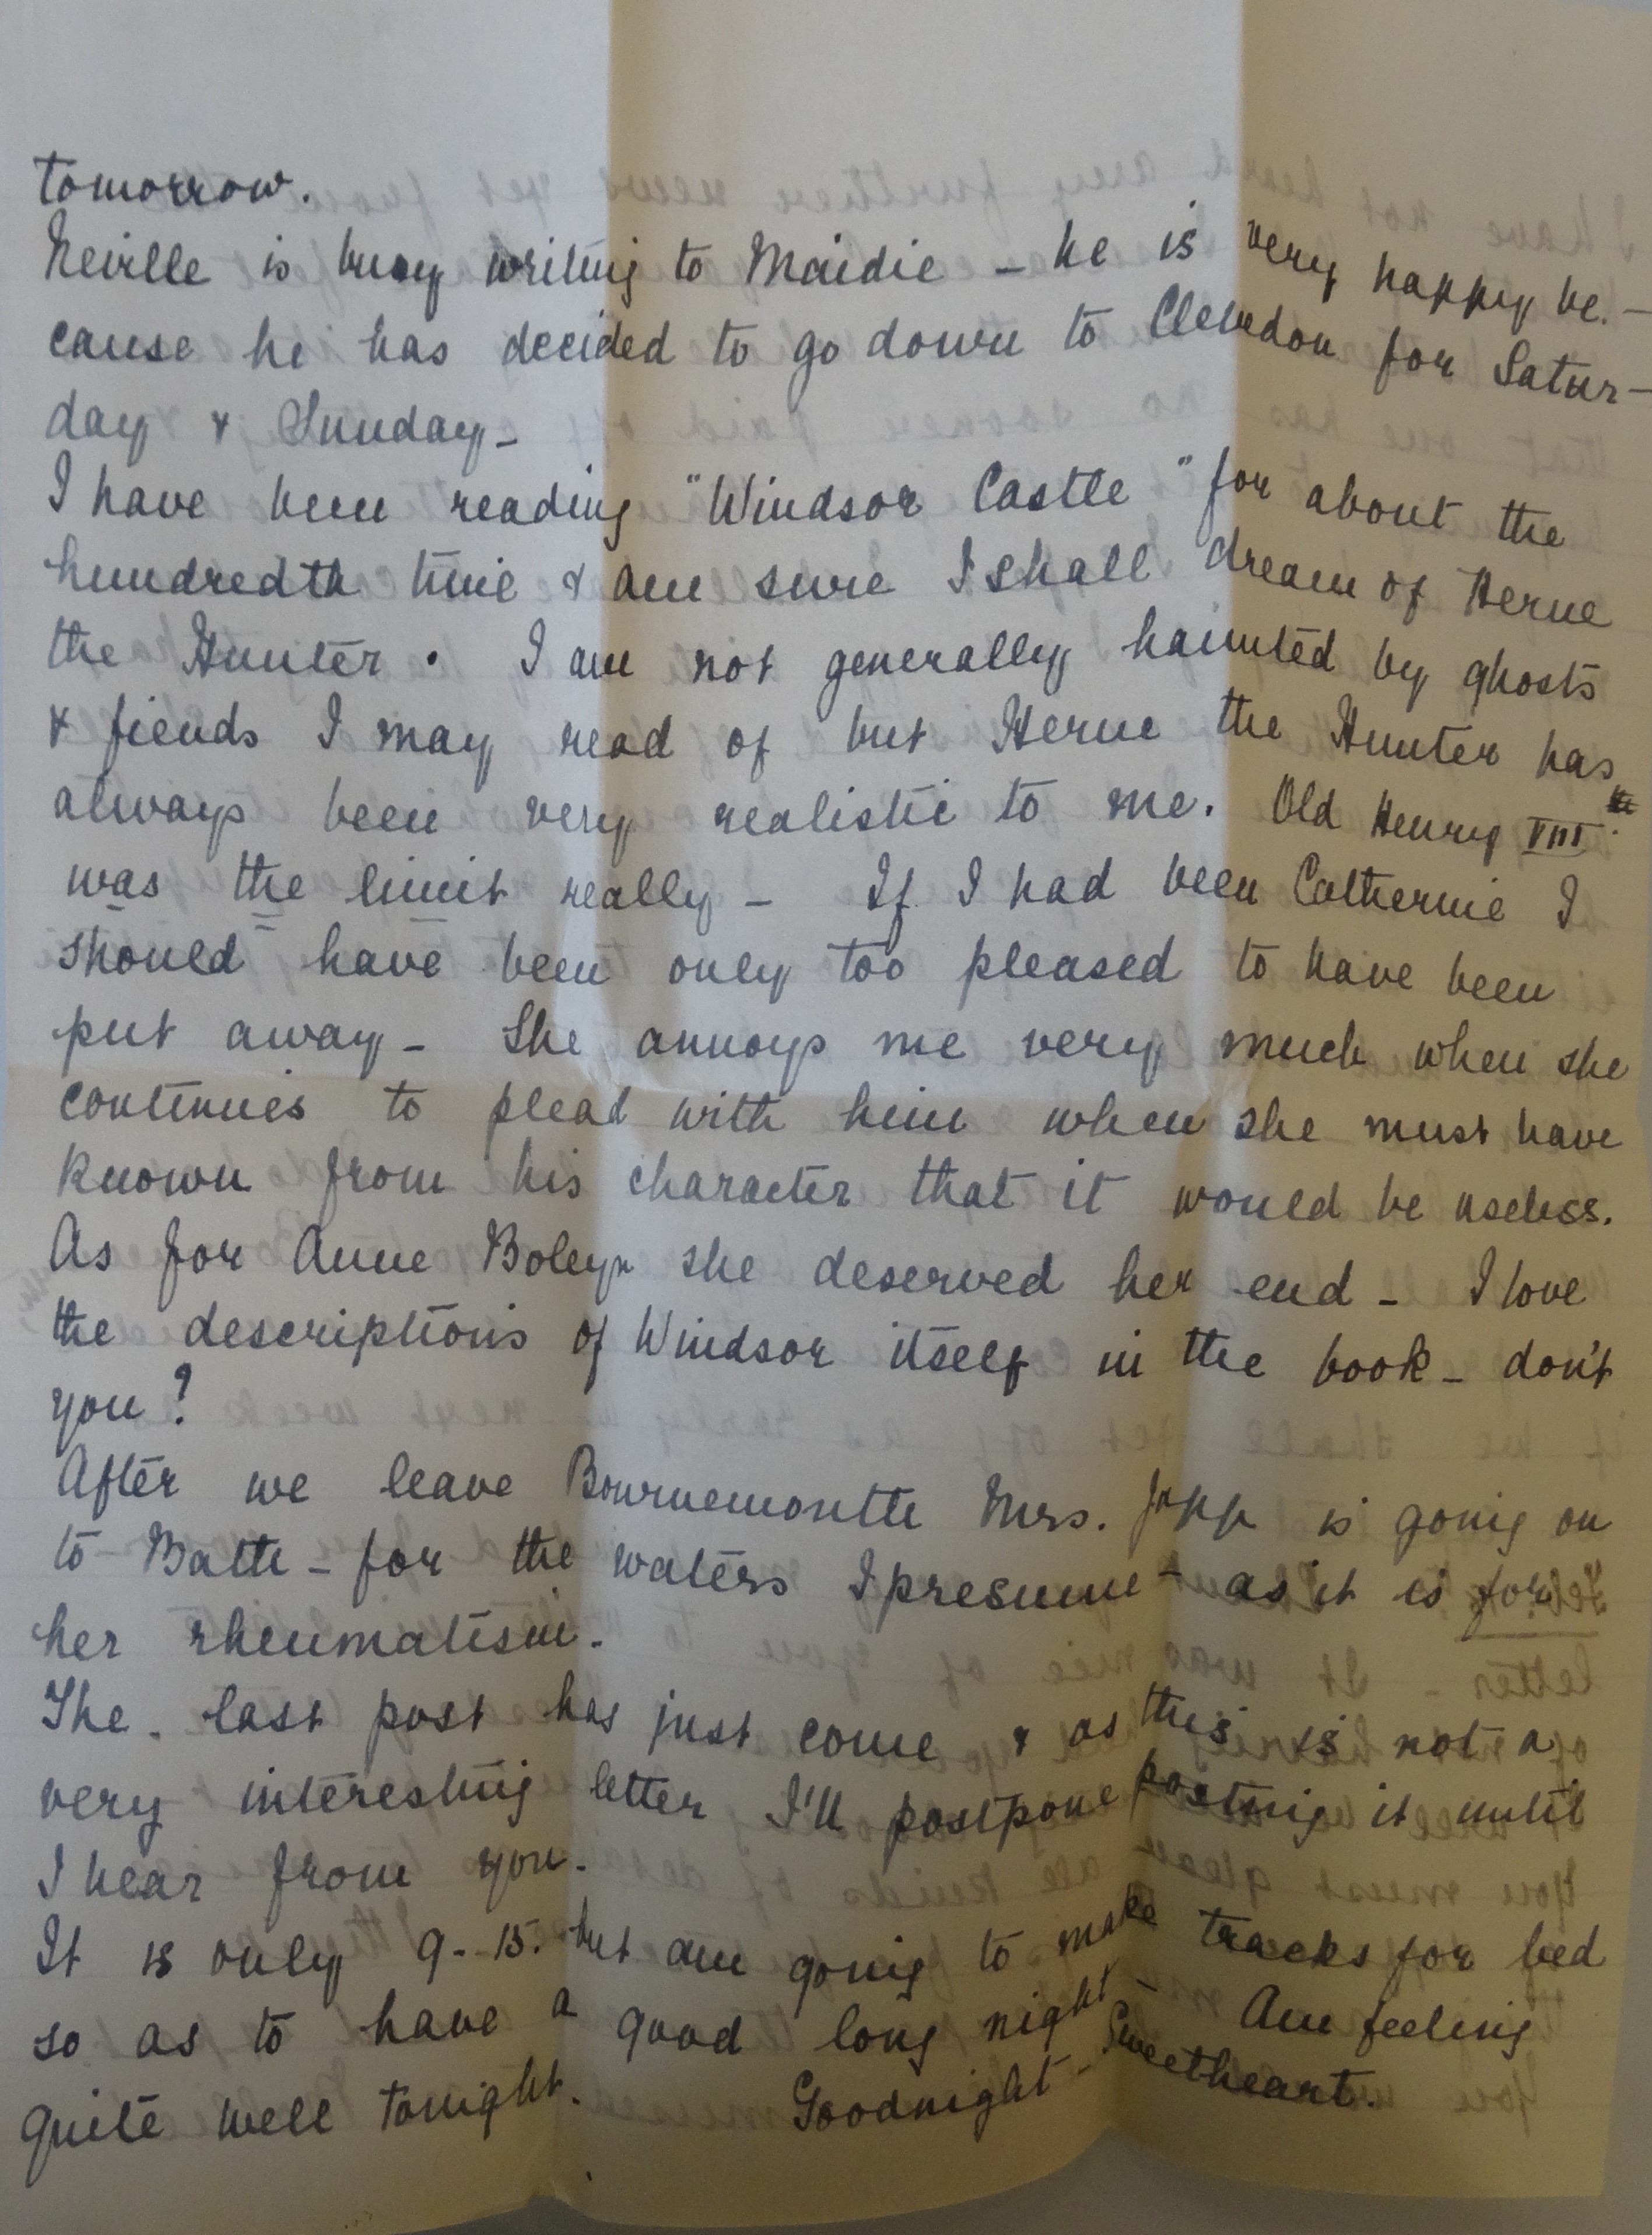 tomorrow.
Neville is busy writing to Maidie – he is very happy be. –
cause he has decided to go down to Clevedon for Satur –
day & Sunday –
I have been reading "Windsor Castle" for about the
hundredth time & am sure I shall dream of Herne
the Hunter. I am not generally haunted by ghosts
& fiends I may read of but Herne the Hunter has
always been very realistic to me. Old Henry VIII th.
was the limit really – If I had been Catherine I
should have been only too pleased to have been
put away – She annoys me very much when she
continues to plead with him when she must have
known from his character that it would be useless.
As for Anne Boleyn she deserved her end – I love
the descriptions of Windsor itself in the book – don't
you?
After we leave Bournemouth Mrs. Jupp is going on
to Bath – for the waters I presume – as it is for
her rheumatism.
The last post has just come & as this is not a
very interesting letter I'll postpone posting it until
I hear from you.
It is only 9-15. but am going to make tracks for bed
so as to have a good long night – Am feeling
quite well tonight. Goodnight – Sweetheart.